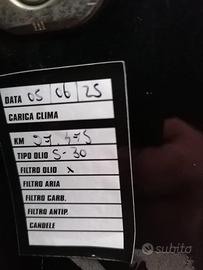 DATA 05 06 25
CARICA CLIMA
KM 97.475
TIPO OLIO 5-30
FILTRO OLIO X
FILTRO ARIA
FILTRO CARB.
FILTRO ANTIP.
CANDELE
subito